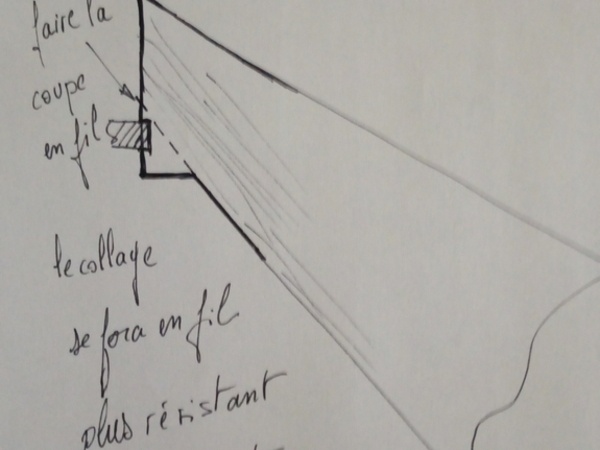 faire la
coupe
en fil
le collage
se fera en fil
plus résistant